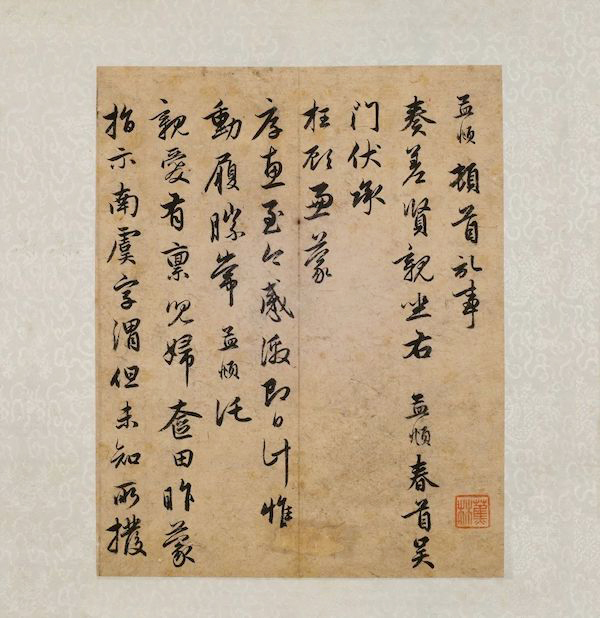 孟頫頓首記事
奏差賢親坐右孟頫春首吳
門伏承
枉顧兼蒙
厚惠至今感激即日計惟
動履勝常孟頫託
親愛有稟兒婦奩田昨蒙
指示南虞字渭但未知所撥
蕉林